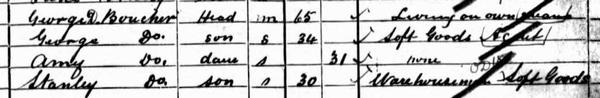 George D. Boucher Head m 65 Living on own means
George Do. son s 34 Soft Goods (Agent)
Amy Do. daur s 31 none
Stanley Do. son s 30 Warehouseman Soft Goods